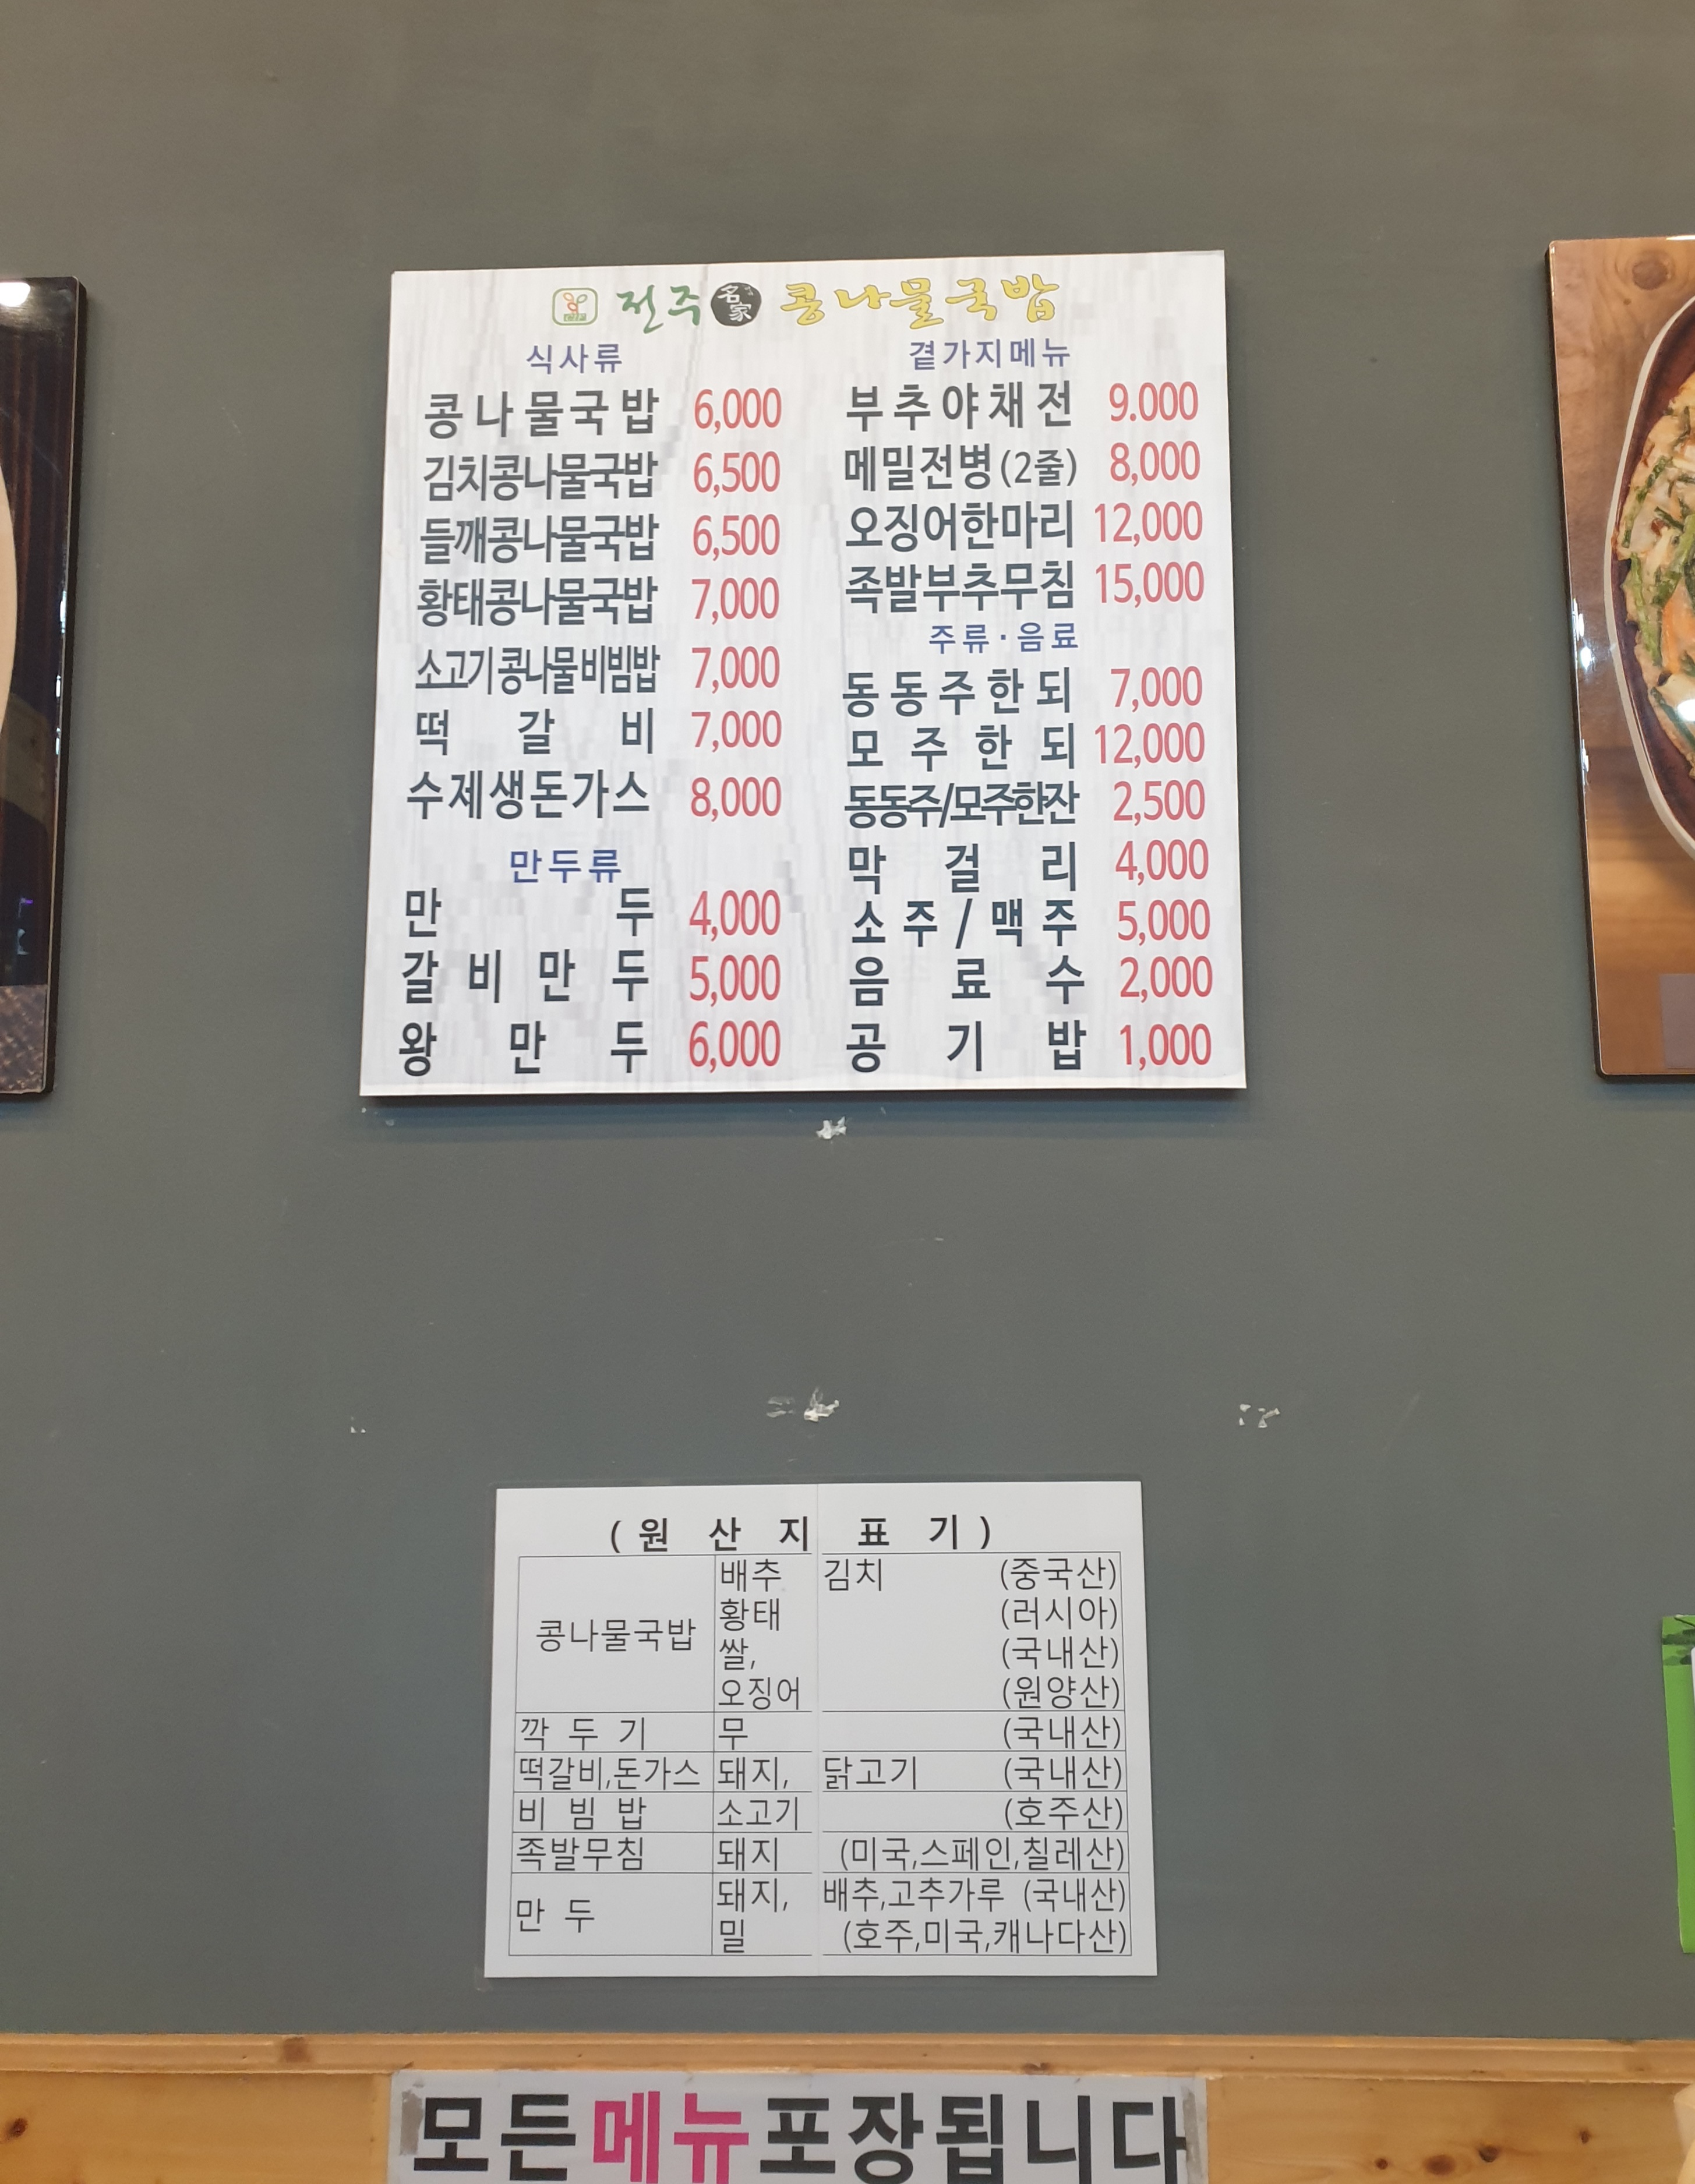 전주 名家 콩나물국밥
식사류
콩나물국밥 6,000
김치콩나물국밥 6,500
들깨콩나물국밥 6,500
황태콩나물국밥 7,000
소고기콩나물비빔밥 7,000
떡갈비 7,000
수제생돈가스 8,000
만두류
만두 4,000
갈비만두 5,000
왕만두 6,000
곁가지메뉴
부추야채전 9.000
메밀전병(2줄) 8,000
오징어한마리 12,000
족발부추무침 15,000
주류·음료
동동주한되 7,000
모주한되 12,000
동동주/모주한잔 2,500
막걸리 4,000
소주/맥주 5,000
음료수 2,000
공기밥 1,000
(원산지표기)
콩나물국밥
배추 김치 (중국산)
황태 (러시아)
쌀, (국내산)
오징어 (원양산)
깍두기 무 (국내산)
떡갈비,돈가스 돼지, 닭고기 (국내산)
비빔밥 소고기 (호주산)
족발무침 돼지 (미국,스페인,칠레산)
만두
돼지, 배추,고추가루 (국내산)
밀 (호주,미국,캐나다산)
모든메뉴포장됩니다